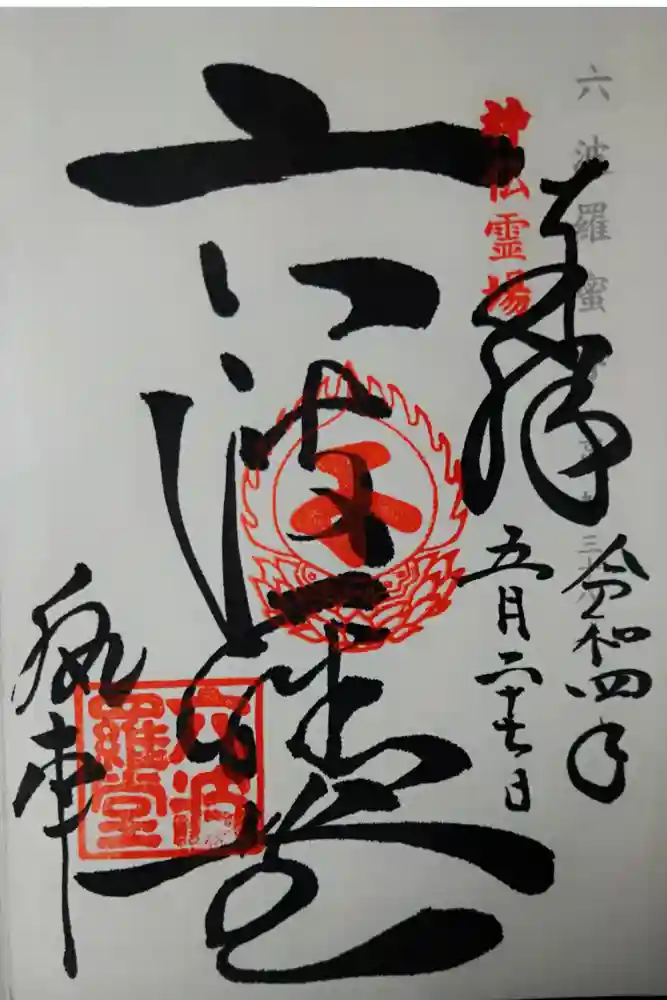 六波羅蜜寺
神仏霊場
奉拝
令和四年
五月二十七日
六波羅堂
六波
羅堂
執事